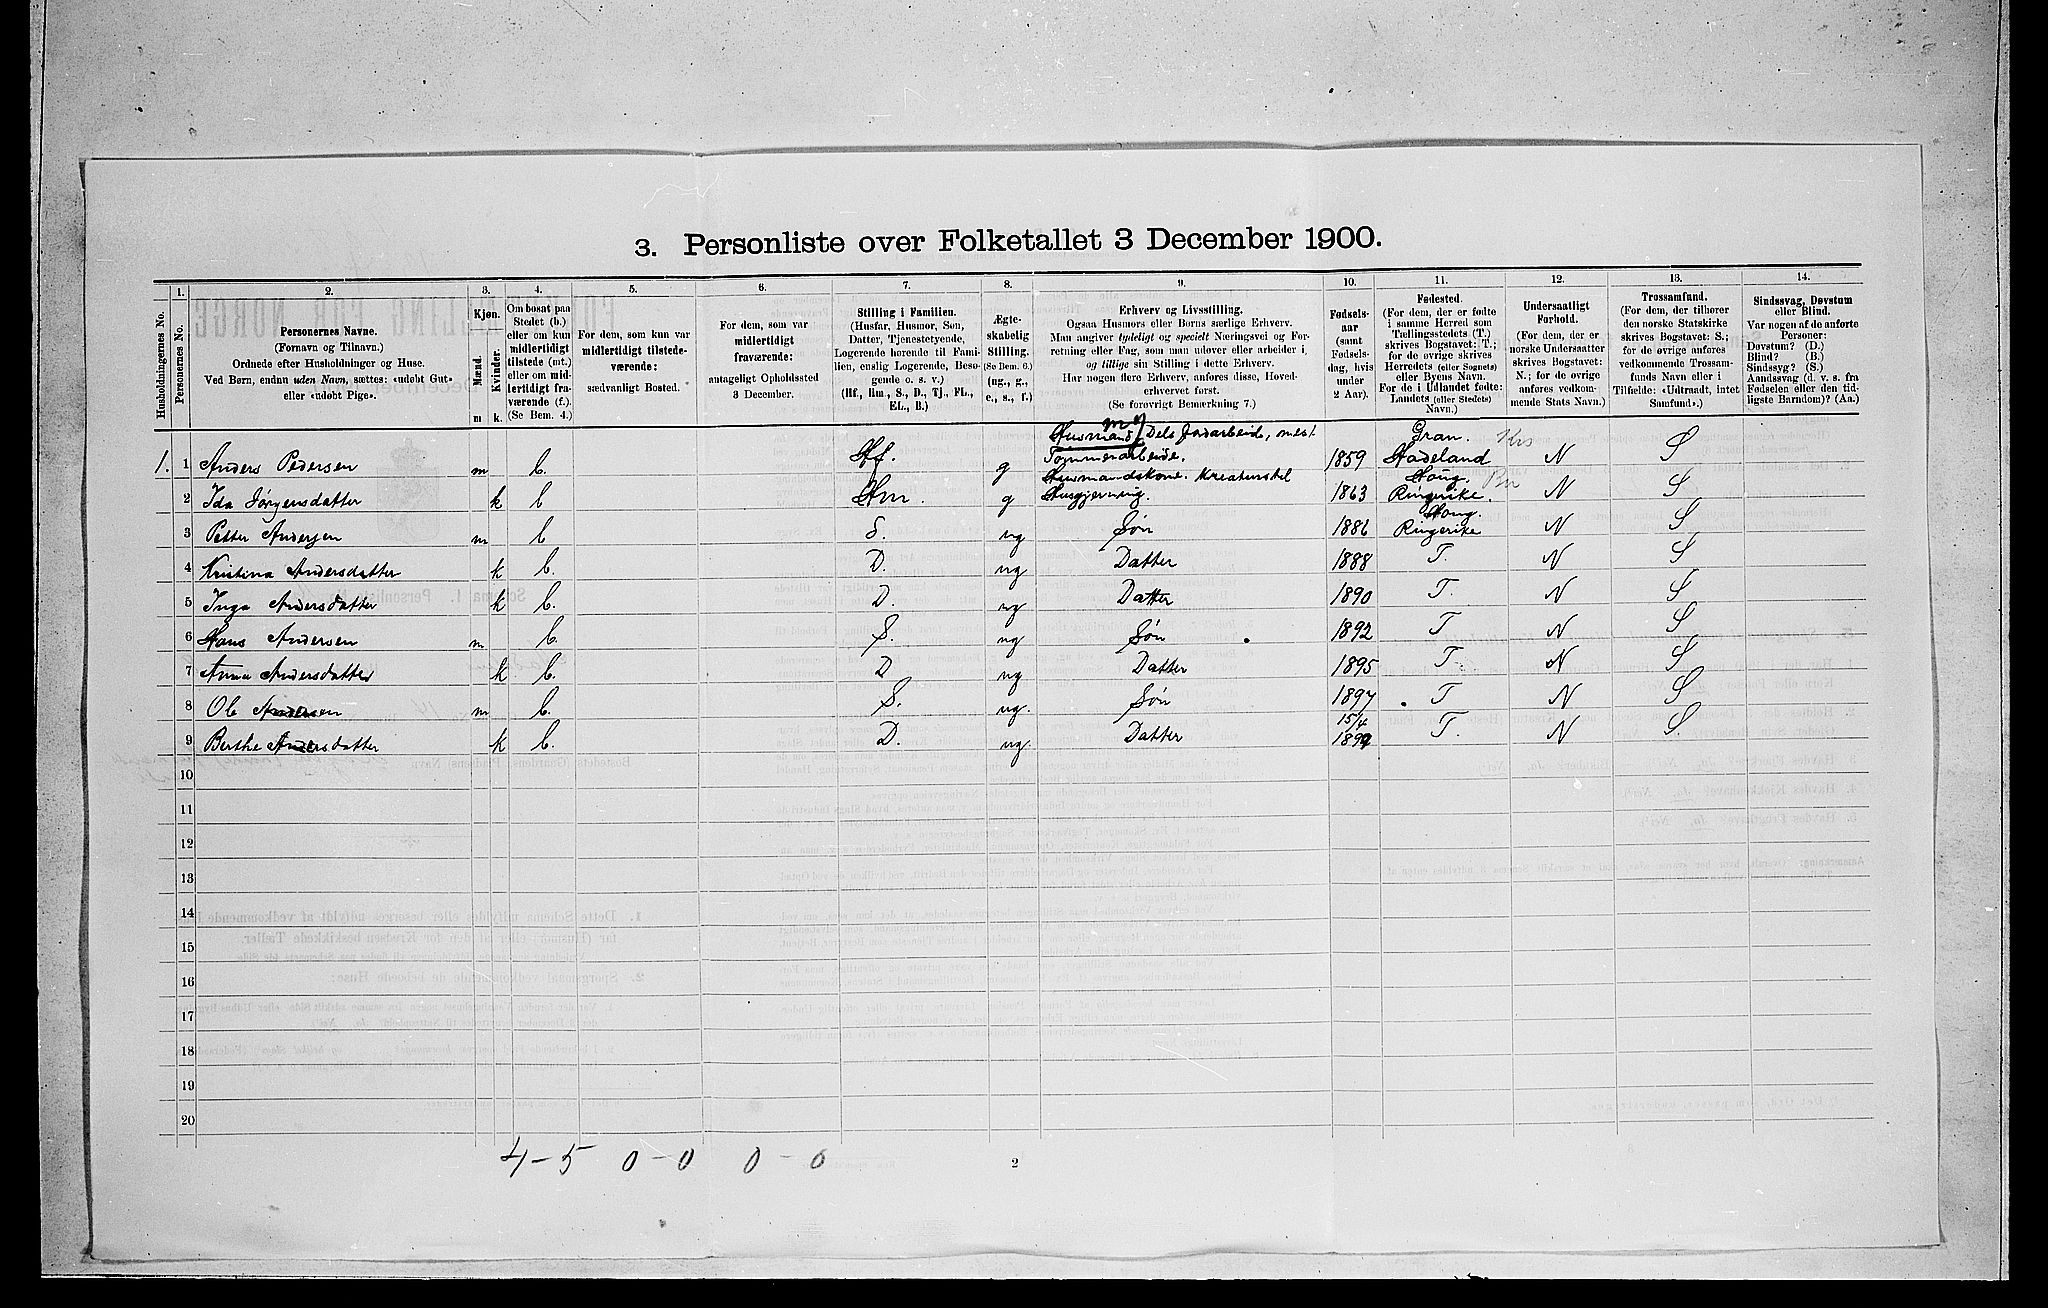 3. Personliste over Folketallet 3 December 1900.
1. 2. 3. 4. 5. 6. 7. 8. 9. 10. 11. 12. 13. 14.
Husholdningernes No.
Personernes No.
Personernes Navne.
(Fornavn og Tilnavn.)
Ordnede efter Husholdninger og Huse.
Ved Børn, endnu uden Navn, sættes: «udøbt Gut»
eller «udøbt Pige».
Kjøn.
Mænd.
Kvinder.
m k.
Om bosat paa
Stedet (b.)
eller om kun
midlertidigt
tilstede (mt.)
eller om mid-
lertidigt fra-
værende (f.).
(Se Bem. 4.)
For dem, som kun var
midlertidigt tilstede-
værende:
sædvanligt Bosted.
For dem, som var
midlertidigt
fraværende:
antageligt Opholdssted
3 December.
Stilling i Familien.
(Husfar, Husmor, Søn,
Datter, Tjenestetyende,
Logerende hørende til Fami-
lien, enslig Logerende, Besø-
gende o. s. v.)
(Hf., Hm., S., D., Tj., FL.,
EL., B.)
Ægte-
skabelig
Stilling.
(Se Bem. 6.)
(ug., g.,
e., s., f.)
Erhverv og Livsstilling.
Ogsaa Husmors eller Børns særlige Erhverv.
Man angiver tydeligt og specielt Næringsvei og For-
retning eller Fag, som man udøver eller arbeider i,
og tillige sin Stilling i dette Erhverv.
Har nogen flere Erhverv, anføres disse, Hoved-
erhvervet først.
(Se forøvrigt Bemærkning 7.)
Fødsels-
aar
(samt
Fødsels-
dag, hvis
under
2 Aar).
Fødested.
(For dem, der er fødte
i samme Herred som
Tællingsstedets (T.)
skrives Bogstavet: T.;
for de øvrige skrives
Herredets (eller Sognets)
eller Byens Navn.
For de i Udlandet fødte:
Landets (eller Stedets)
Navn.)
Undersaatligt
Forhold.
(For dem, der er
norske Undersaatter
skrives Bogstavet:
N.; for de øvrige
anføres vedkom-
mende Stats Navn.)
Trossamfund.
(For dem, der tilhører
den norske Statskirke
skrives Bogstavet: S.;
for de øvrige anføres
vedkommende Trossam-
funds Navn eller i
Tilfælde: «Udtraadt, intet
Samfund».)
Sindssvag, Døvstum
eller Blind.
Var nogen af de anførte
Personer:
Døvstum? (D.)
Blind? (B.)
Sindssyg? (S.)
Aandssvag (d. v. s. fra
Fødselen eller den tid-
ligste Barndom)? (Aa.)
1. 1 Anders Pedersen m b. Hf. g Husmand Dels Jordarbeide, mest Tømmerarbeide. 1859 Gran. Hadeland N S
2 Ida Jørgensdatter k b Hm. g Husmandskone. Kreaturstel Husgjerning. 1863 Houg. Ringerike. N S
3 Petter Andersen m b S. ug Søn 1886 Houg. Ringerike N S
4 Kristina Andersdatter k b. D. ug Datter 1888 T. N S
5 Inga Andersdatter k b. D. ug Datter 1890 T. N S
6 Hans Andersen m b. S. ug Søn 1892 T N S
7 Anna Andersdatter k b. D ug Datter 1895 T. N S
8 Ole Andersen m b. S. ug. Søn 1897 T N S
9 Berthe Andersdatter k b. D. ug. Datter 15/4 1899 T. N S.
10
11
12
13
14
15
16
17
18
19
20
4 - 5 0 - 0 0 - 0
2